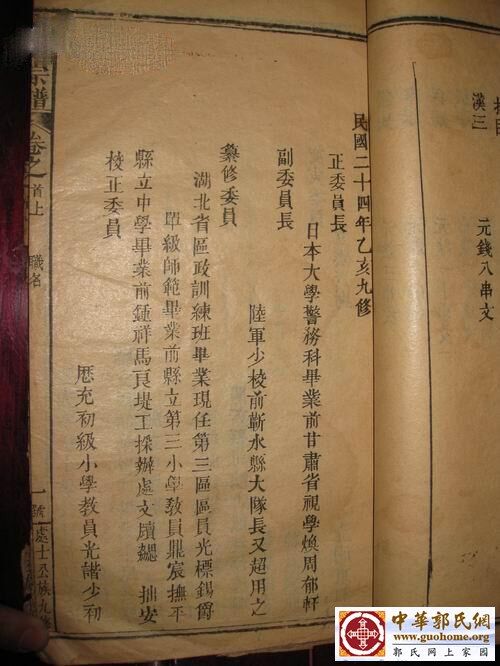 漢三
元錢八串文
民國二十四年乙亥九修
正委員長
日本大學警務科畢業前甘肅省視學煥周郁軒
副委員長
陸軍少校前蘄水縣大隊長又超用之
纂修委員
湖北省區政訓練班畢業現任第三區區員光標錫爵
單級師範畢業前縣立第三小學敎員鼎宸撫平
縣立中學畢業前鍾祥馬良堤工採辦處文牘勰 拙安
校正委員
歷充初級小學教員光諧少初
宗譜
卷之首上
職名
一
號處士公族九修
中華郭氏網
www.guohome.org
郭氏网上家园